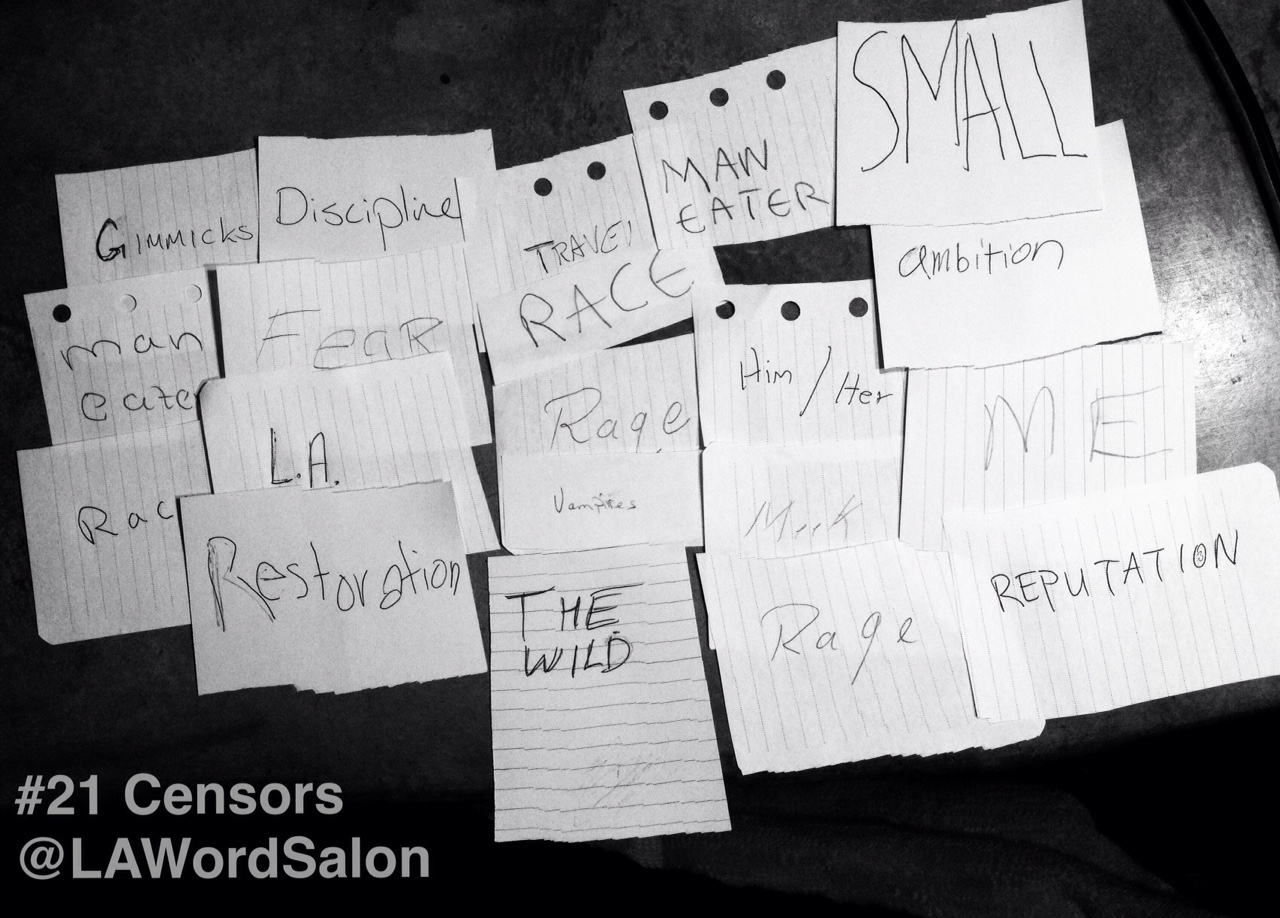 SMALL
MAN
EATER
Gimmicks
Discipline
TRAVEl
ambition
man
eate
FeaR
RACE
Him/Her
L.A.
Rage
ME
Rac
Vampires
Restoration
THE
WILD
Rage
REPUTATION
#21 Censors
@LAWordSalon